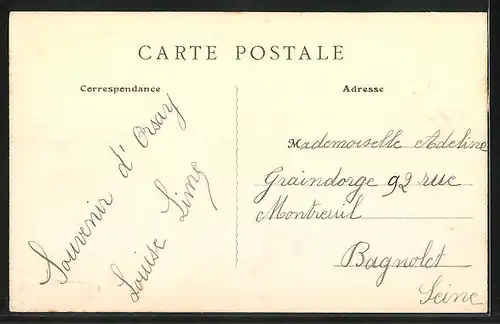 CARTE POSTALE
Correspondance
Souvenir d'Orsay
Louise
Adresse
Mademoiselle Adeline
Graindorge 92 rue
Montreuil
Bagnolet
Seine